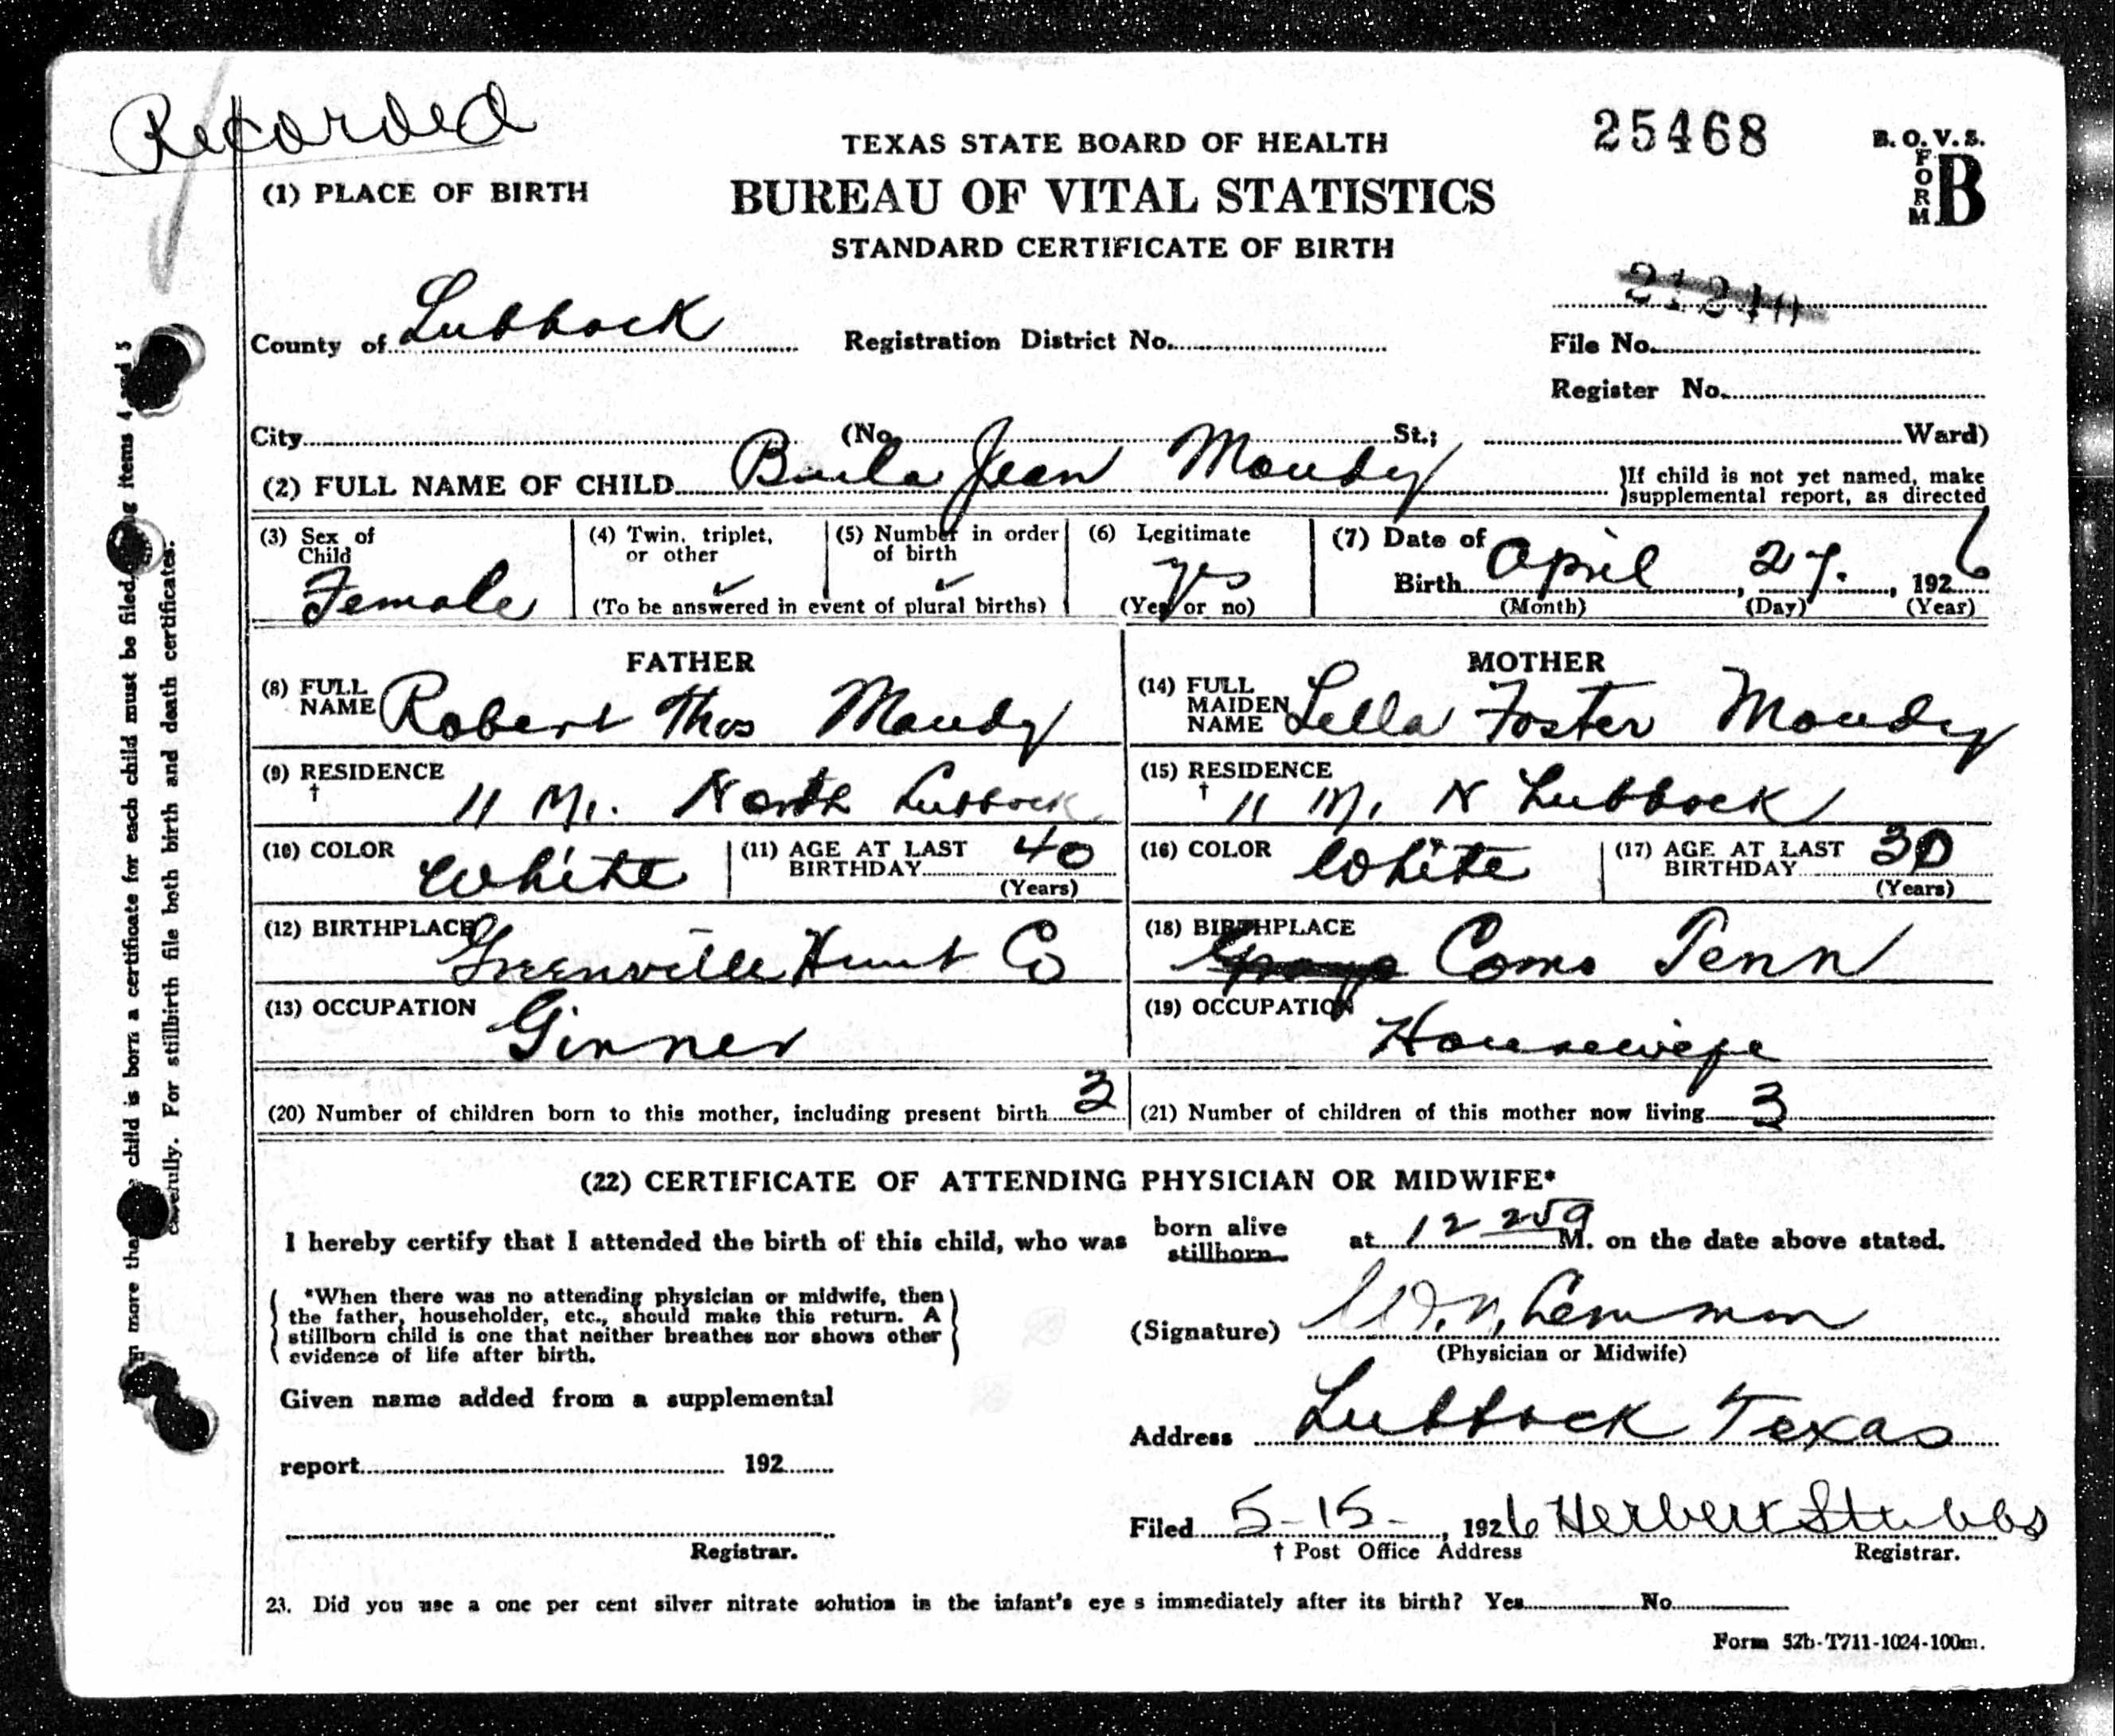 Recorded
TEXAS STATE BOARD OF HEALTH
25468
B. O. V. S.
FORM B
(1) PLACE OF BIRTH
BUREAU OF VITAL STATISTICS
STANDARD CERTIFICATE OF BIRTH
County of Lubbock Registration District No. File No.
Register No.
City (No. St.; Ward)
(2) FULL NAME OF CHILD Jean Moudy }If child is not yet named, make
}supplemental report, as directed
(3) Sex of Child Female
(4) Twin, triplet, or other ✓ (5) Number in order of birth ✓
(To be answered in event of plural births)
(6) Legitimate yes (Yes or no)
(7) Date of Birth April, 27., 1926
(Month) (Day) (Year)
FATHER
(8) FULL NAME Robert Thos Moudy
(9) RESIDENCE † 11 Mi. North Lubbock
(10) COLOR White (11) AGE AT LAST BIRTHDAY 40 (Years)
(12) BIRTHPLACE Greenville Hunt Co
(13) OCCUPATION Ginner
MOTHER
(14) FULL MAIDEN NAME Lella Foster Moudy
(15) RESIDENCE † 11 Mi N Lubbock
(16) COLOR White (17) AGE AT LAST BIRTHDAY 30 (Years)
(18) BIRTHPLACE Como Tenn
(19) OCCUPATION Housewife
(20) Number of children born to this mother, including present birth 3
(21) Number of children of this mother now living 3
(22) CERTIFICATE OF ATTENDING PHYSICIAN OR MIDWIFE*
I hereby certify that I attended the birth of this child, who was born alive stillborn at 12 25 a M. on the date above stated.
*When there was no attending physician or midwife, then
the father, householder, etc., should make this return. A
stillborn child is one that neither breathes nor shows other
evidence of life after birth.
(Signature) W. N. Lemmon
(Physician or Midwife)
Given name added from a supplemental
report 192
Address Lubbock Texas
Registrar.
Filed 5-15-, 1926 Herbert Stubbs
† Post Office Address Registrar.
23. Did you use a one per cent silver nitrate solution in the infant's eye s immediately after its birth? Yes No
Form 52b-T711-1024-100m.
child is born a certificate for each child must be filed, items 4 and 5
carefully. For stillbirth file both birth and death certificates.